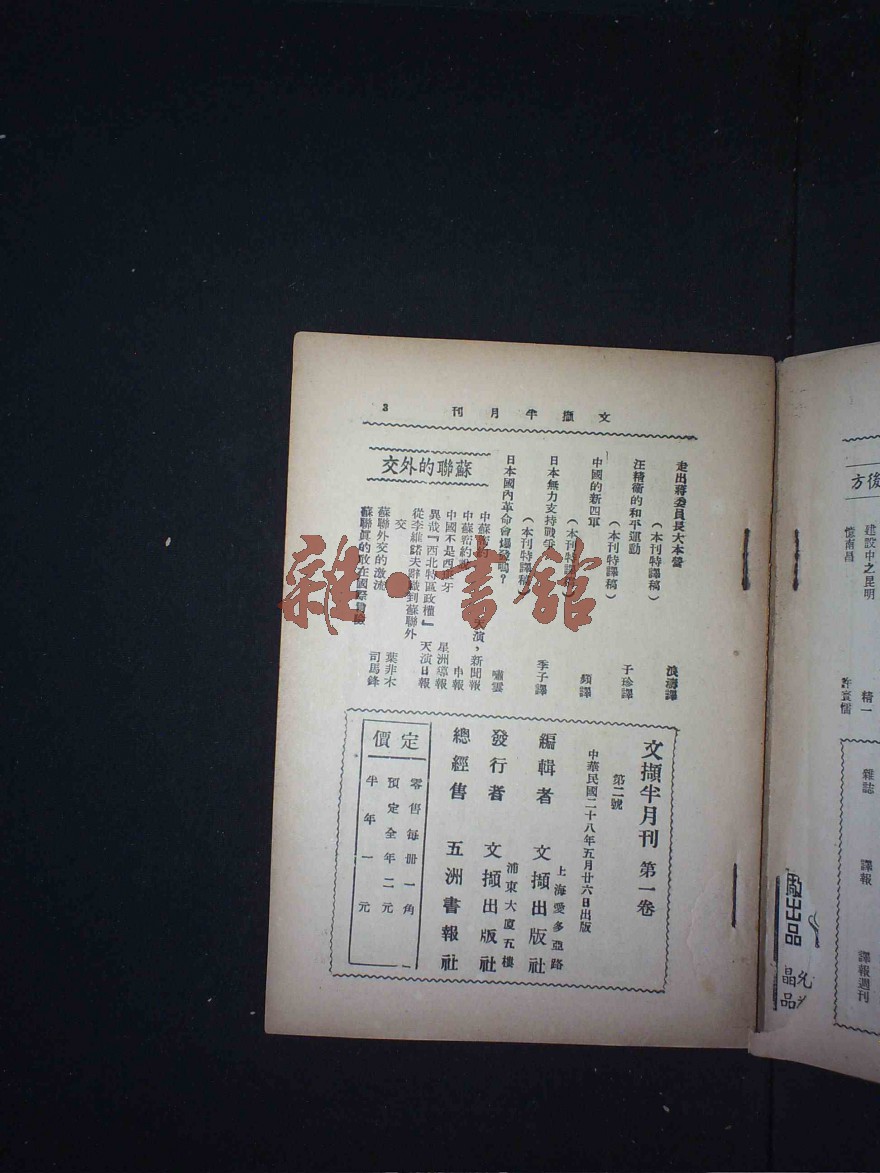 文擷半月刊
3
走出蔣委員長大本營
（本刊特譯稿）
浪濤譯
汪精衞的和平運動
（本刊特譯稿）
子珍譯
中國的新四軍
（本刊特譯稿）
頻譯
日本無力支持戰爭
（本刊特譯稿）
季子譯
日本國內革命會爆發嗎？
嘯雲
蘇聯的外交
中蘇新約
天演，新聞報
中蘇新約
申報
中國不是西班牙
星洲導報
異哉『西北特區政權』
天演日報
從李維諾夫辭職到蘇聯外交
蘇聯外交的激流
葉非木
蘇聯眞的敢在國際冒險
司馬鋒
文擷半月刊 第一卷
第二號
中華民國二十八年五月廿六日出版
編輯者 文擷出版社
上海愛多亞路
浦東大廈五樓
發行者 文擷出版社
總經售 五洲書報社
定價
零售每冊一角
預定全年二元
半年一元
雜·書館
後方
建設中之昆明
精一
憶南昌
許寰儒
雜誌
譯報
譯報週刊
廠出品
晶品